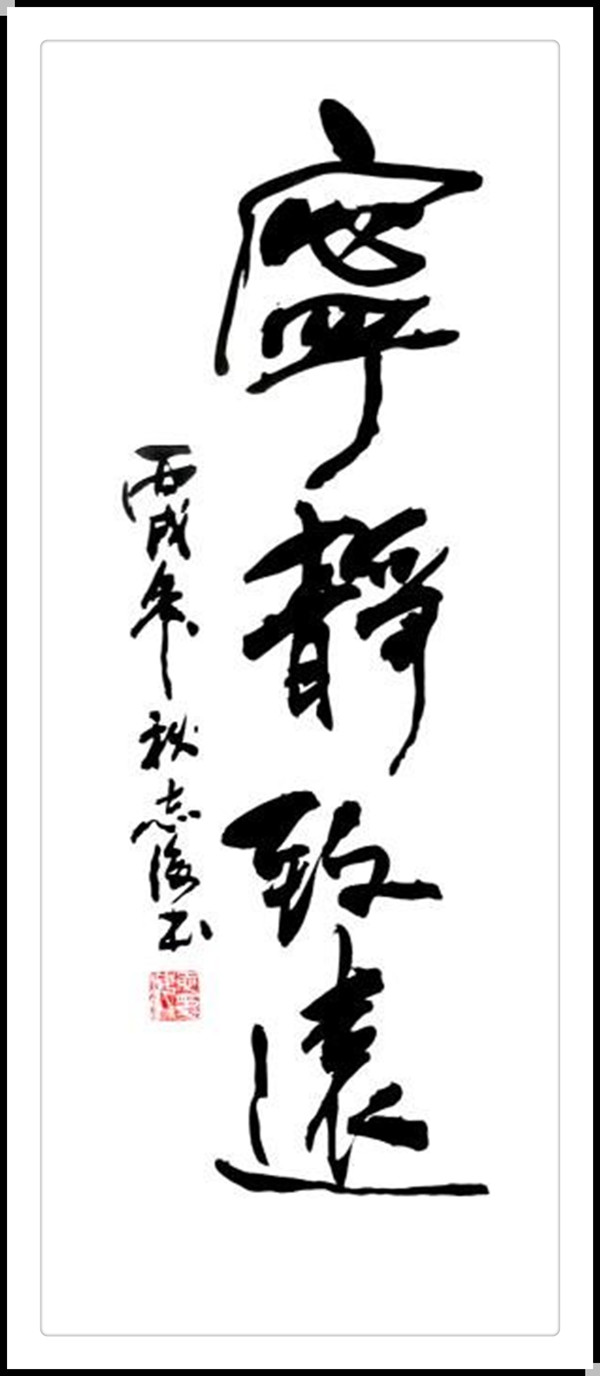 寧靜致遠
丙戌年秋志海书